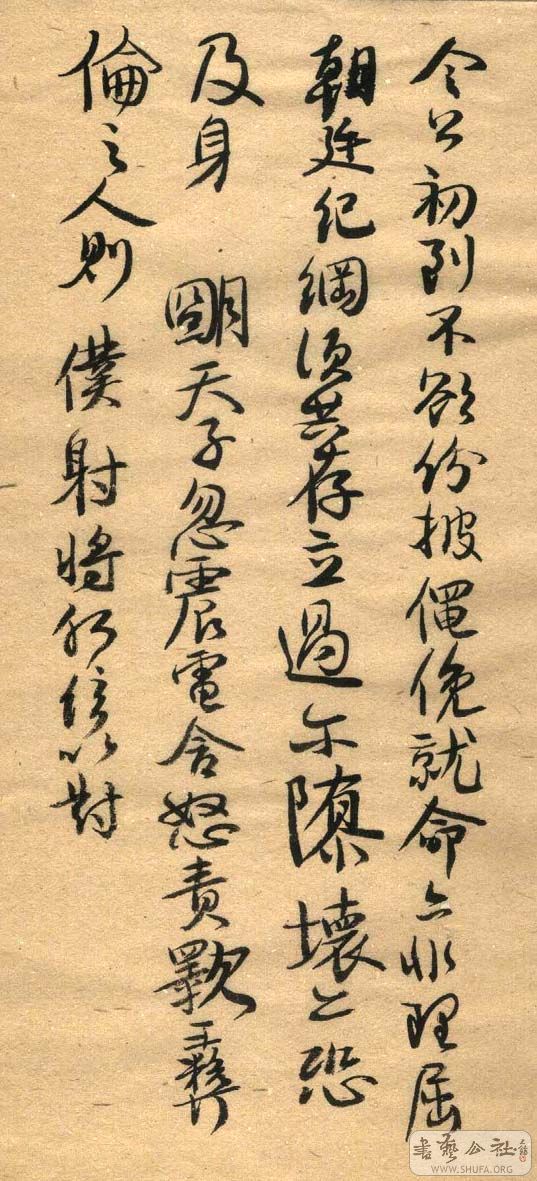 令公初到不欲份披僶俛就命亦非理屈
朝廷纪綱須共存立過尓隳壞亦恐
及身 明天子忽震電含怒責歝彝
倫之人則 僕射將何辞以對
書藝公社
WWW.SHUFA.ORG